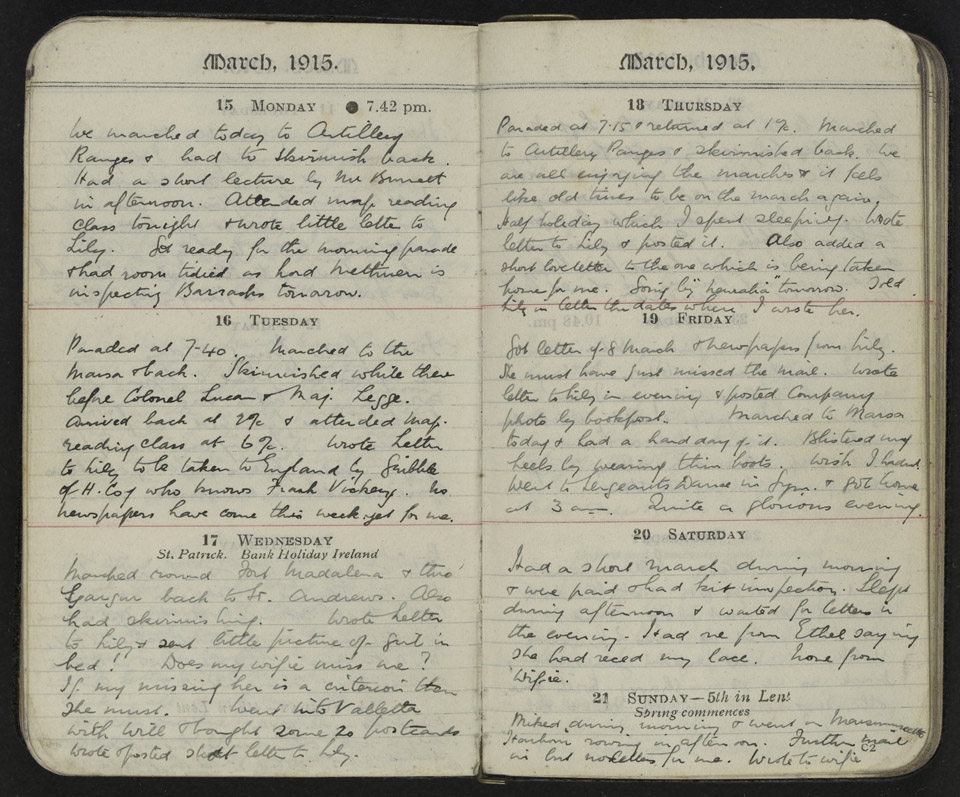 March, 1915.
15 MONDAY ● 7.42 pm.
We marched today to Artillery
Ranges & had to skirmish back.
Had a short lecture by Mr Burnett
in afternoon. Attended map reading
class tonight & wrote little letter to
Lily. Got ready for the morning parade
& had room tidied as Lord Methuen is
inspecting Barracks tomorow.
16 TUESDAY
Paraded at 7-40. Marched to the
Marsa & back. Skirmished while there
before Colonel Lucan & Maj. Legge.
Arrived back at 2 & attended map-
reading class at 6. Wrote letter
to Lily to be taken to England by
of H. Coy who knows Frank. No
newspapers have come this week yet for me.
17 WEDNESDAY
St. Patrick. Bank Holiday Ireland
Marched round Fort Madalena & thro'
Gargur back to St. Andrews. Also
had skirmishing. Wrote letter
to Lily & sent little picture of girl in
bed! Does my wifie miss me?
If my missing her is a criterion then
she must. Went into Valletta
with Will & bought some 20 postcards
wrote & posted short letter to Lily.
March, 1915.
18 THURSDAY
Paraded at 7.15 & returned at 1. Marched
to Artillery Ranges & skirmished back. We
are all enjoying the marches & it feels
like old times to be on the march again.
Half holiday which I spent sleeping. Wrote
letter to Lily & posted it. Also added a
short love letter to the one which is being taken
home for me. Going by "Neuralia" tomorrow. Told
Lily in letter the dates where I wrote her.
19 FRIDAY
Got letter of 8 March & newspapers from Lily.
She must have just missed the mail. Wrote
letter to Lily in evening & posted Company
photo by bookpost. Marched to Marsa
today & had a hard day of it. Blistered my
heels by wearing thin boots. Wish I hadnt.
Went to Sergeants Dance in Gym. & got home
at 3 am. Quite a glorious evening.
20 SATURDAY
Had a short march during morning
& were paid & had kit inspection. Slept
during afternoon & waited for letters in
the evening. Had one from Ethel saying
she had recd my lace. None from
'Wifie.
21 SUNDAY—5th in Lent
Spring commences
during morning & went on
Harbour rowing in afternoon. Further mail
in but no letters for me. Wrote to wifie